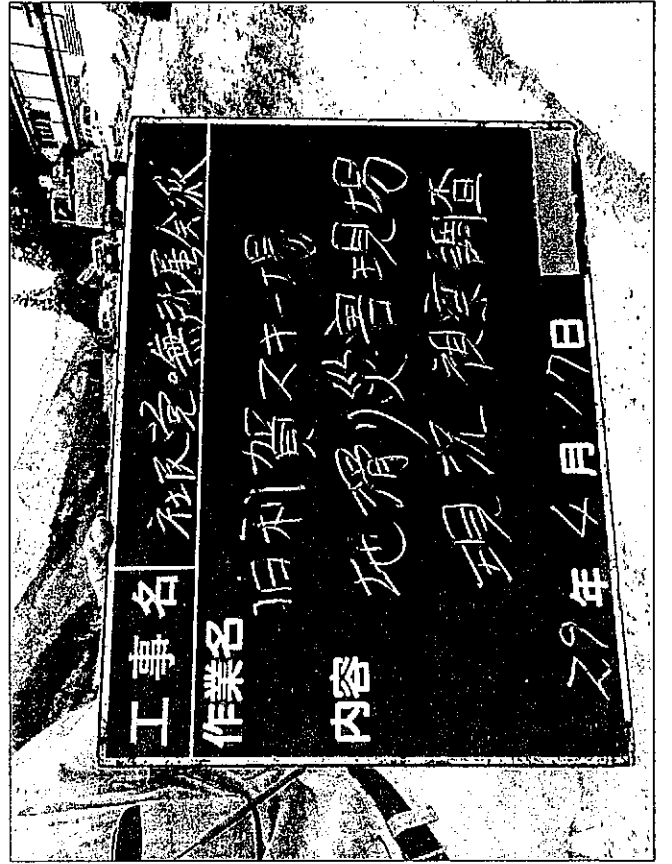 工事名 社民党・無所属会派
作業名 旧利賀スキー場
内容 地滑り災害現場
現況視察調査
29年4月17日